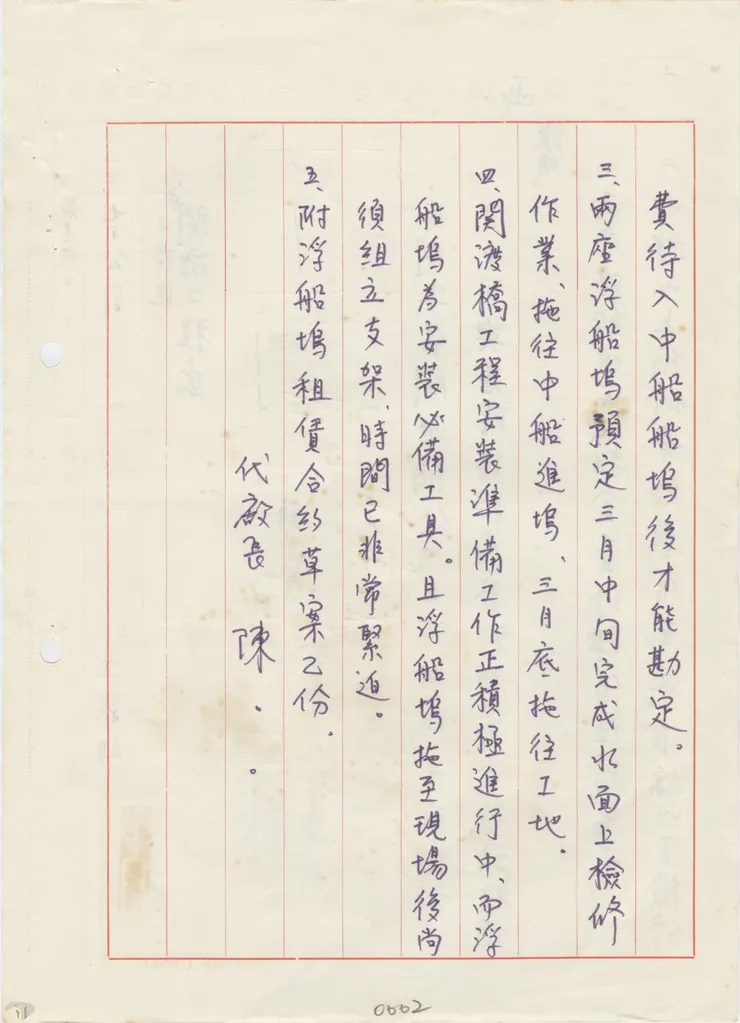 費待入中船船塢後才能勘定。
三、兩座浮船塢預定三月中旬完成水面上檢修
作業、拖往中船進塢、三月底拖往工地。
四、関渡橋工程安裝準備工作正積極進行中、而浮
船塢為安裝必備工具。且浮船塢拖至現場後尚
須組立支架、時間已非常緊迫。
五、附浮船塢租賃合約草案乙份.
代廠長 陳..
0002